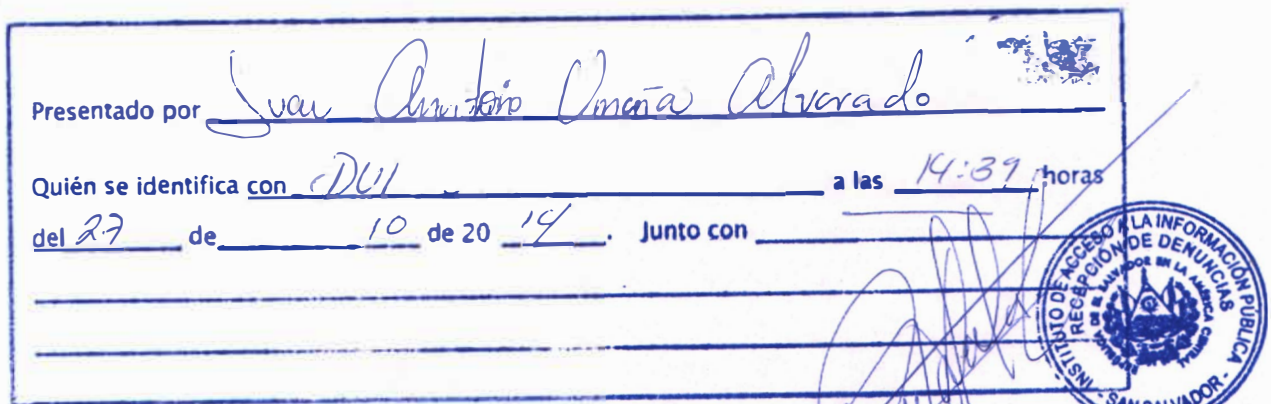 Presentado por Juan Antonio Umaña Alvarado
Quién se identifica con DUI a las 14:39 horas
del 27 de 10 de 20 14. Junto con
INSTITUTO DE ACCESO A LA INFORMACIÓN PÚBLICA
RECEPCIÓN DE DENUNCIAS
DE EL SALVADOR EN LA AMÉRICA CENTRAL
SAN SALVADOR